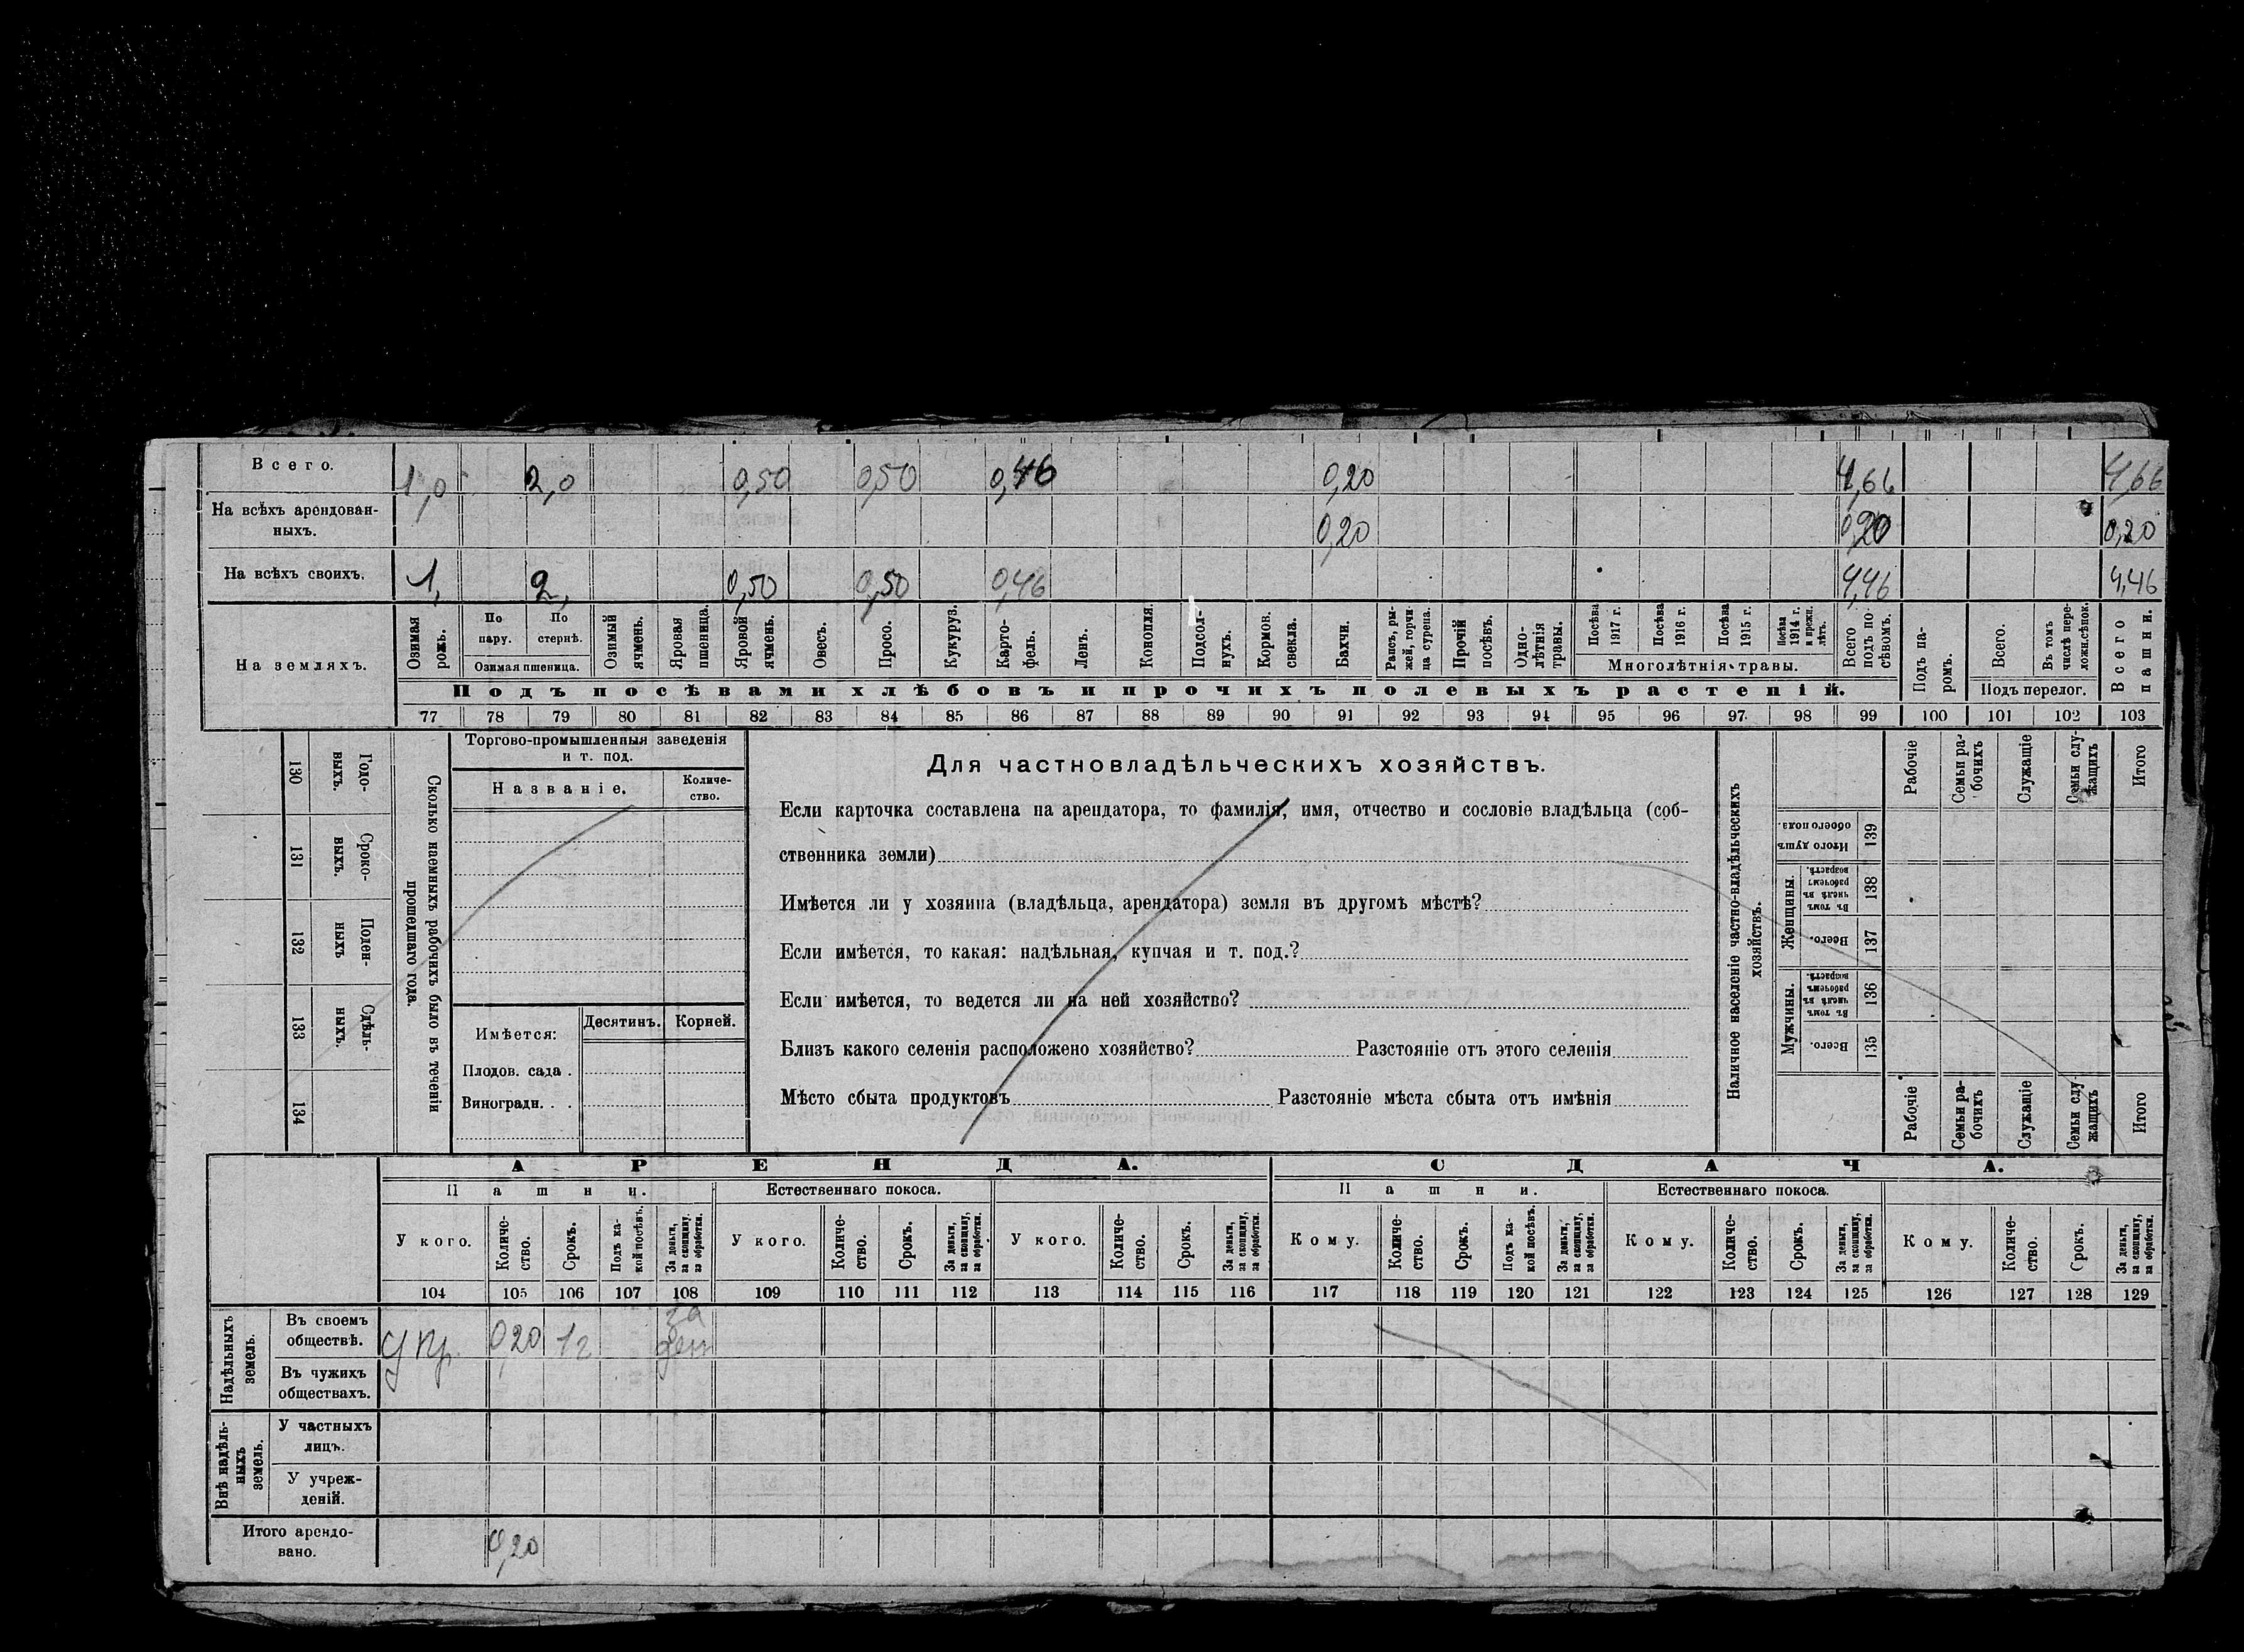 Всего. 1,0 2,0 0,50 0,50 0,46 0,20 4,66 4,66
На всѣхъ арендован-
ныхъ. 0,20 0,20 0,20
На всѣхъ своихъ. 1, 2, 0,50 0,50 0,46 4,46 4,46
На земляхъ.
Озимая рожь.
По пару.
По стернѣ.
Озимая пшеница.
Озимый ячмень.
Яровая пшеница.
Яровой ячмень.
Овесъ.
Просо.
Кукуруз.
Карто-
фель.
Ленъ.
Конопля.
Подсол-
нухъ.
Кормов. свекла.
Бахчи.
Рапсъ, ры-
жей, горчи-
ца сурепа.
Прочій посѣвъ.
Одно-
лѣтнія травы.
Посѣва 1917 г.
Посѣва 1916 г.
Посѣва 1915 г.
Посѣва 1914 г. и прежн. лѣтъ.
Многолѣтнія травы.
Всего подъ по-
сѣвомъ.
Подъ па-
ромъ.
Всего.
Въ томъ числѣ пере-
ложн. сѣнок.
Подъ перелог.
Всего пашни.
Подъ посѣвами хлѣбовъ и прочихъ полевыхъ растеній.
77 78 79 80 81 82 83 84 85 86 87 88 89 90 91 92 93 94 95 96 97 98 99 100 101 102 103
130 Годо-
выхъ.
131 Сроко-
выхъ.
132 Поден-
ныхъ
133 Сдѣль-
ныхъ.
134
Сколько наемныхъ рабочихъ было въ теченіи
прошедшаго года.
Торгово-промышленныя заведенія
и т. под.
Названіе.
Количе-
ство.
Имѣется: Десятинъ. Корней.
Плодов. сада .
Виноградн. . .
Для частновладѣльческихъ хозяйствъ.
Если карточка составлена на арендатора, то фамилія, имя, отчество и сословіе владѣльца (соб-
ственника земли)
Имѣется ли у хозяина (владѣльца, арендатора) земля въ другомъ мѣстѣ?
Если имѣется, то какая: надѣльная, купчая и т. под.?
Если имѣется, то ведется ли на ней хозяйство?
Близъ какого селенія расположено хозяйство? Разстояніе отъ этого селенія
Мѣсто сбыта продуктовъ Разстояніе мѣста сбыта отъ имѣнія
Наличное населеніе частно-владѣльческихъ
хозяйствъ.
Рабочіе
Семьи ра-
бочихъ
Служащіе
Семьи слу-
жащихъ
Итого
Итого душъ обоего пола. 139
Женщины.
Въ томъ числѣ въ рабочемъ возрастѣ. 138
Всего. 137
Мужчины.
Въ томъ числѣ въ рабочемъ возрастѣ. 136
Всего. 135
Рабочіе
Семьи ра-
бочихъ
Служащіе
Семьи слу-
жащихъ
Итого
АРЕНДА. СДАЧА.
Пашни. Естественнаго покоса. Пашни. Естественнаго покоса.
У кого.
Количе-
ство.
Срокъ.
Подъ ка-
кой посѣвъ.
За деньги, за скопщину, за обработки.
У кого.
Количе-
ство.
Срокъ.
За деньги, за скопщину, за обработки.
У кого.
Количе-
ство.
Срокъ.
За деньги, за скопщину, за обработки.
Кому.
Количе-
ство.
Срокъ.
Подъ ка-
кой посѣвъ.
За деньги, за скопщину, за обработки.
Кому.
Количе-
ство.
Срокъ.
За деньги, за скопщину, за обработки.
Кому.
Количе-
ство.
Срокъ.
За деньги, за скопщину, за обработки.
104 105 106 107 108 109 110 111 112 113 114 115 116 117 118 119 120 121 122 123 124 125 126 127 128 129
Надѣльныхъ земель.
Въ своемъ
обществѣ. 0,20 1 г за
Въ чужихъ
обществахъ.
Внѣ надѣль-
ныхъ земель.
У частныхъ
лицъ.
У учреж-
деній.
Итого арендо-
вано. 0,20